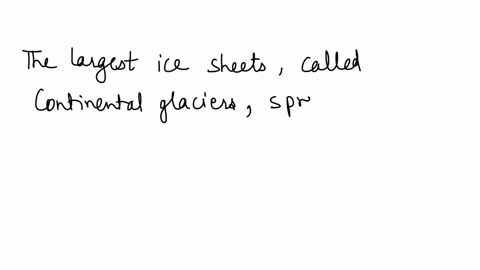 The largest ice sheets, called
Continental glaciers, spr